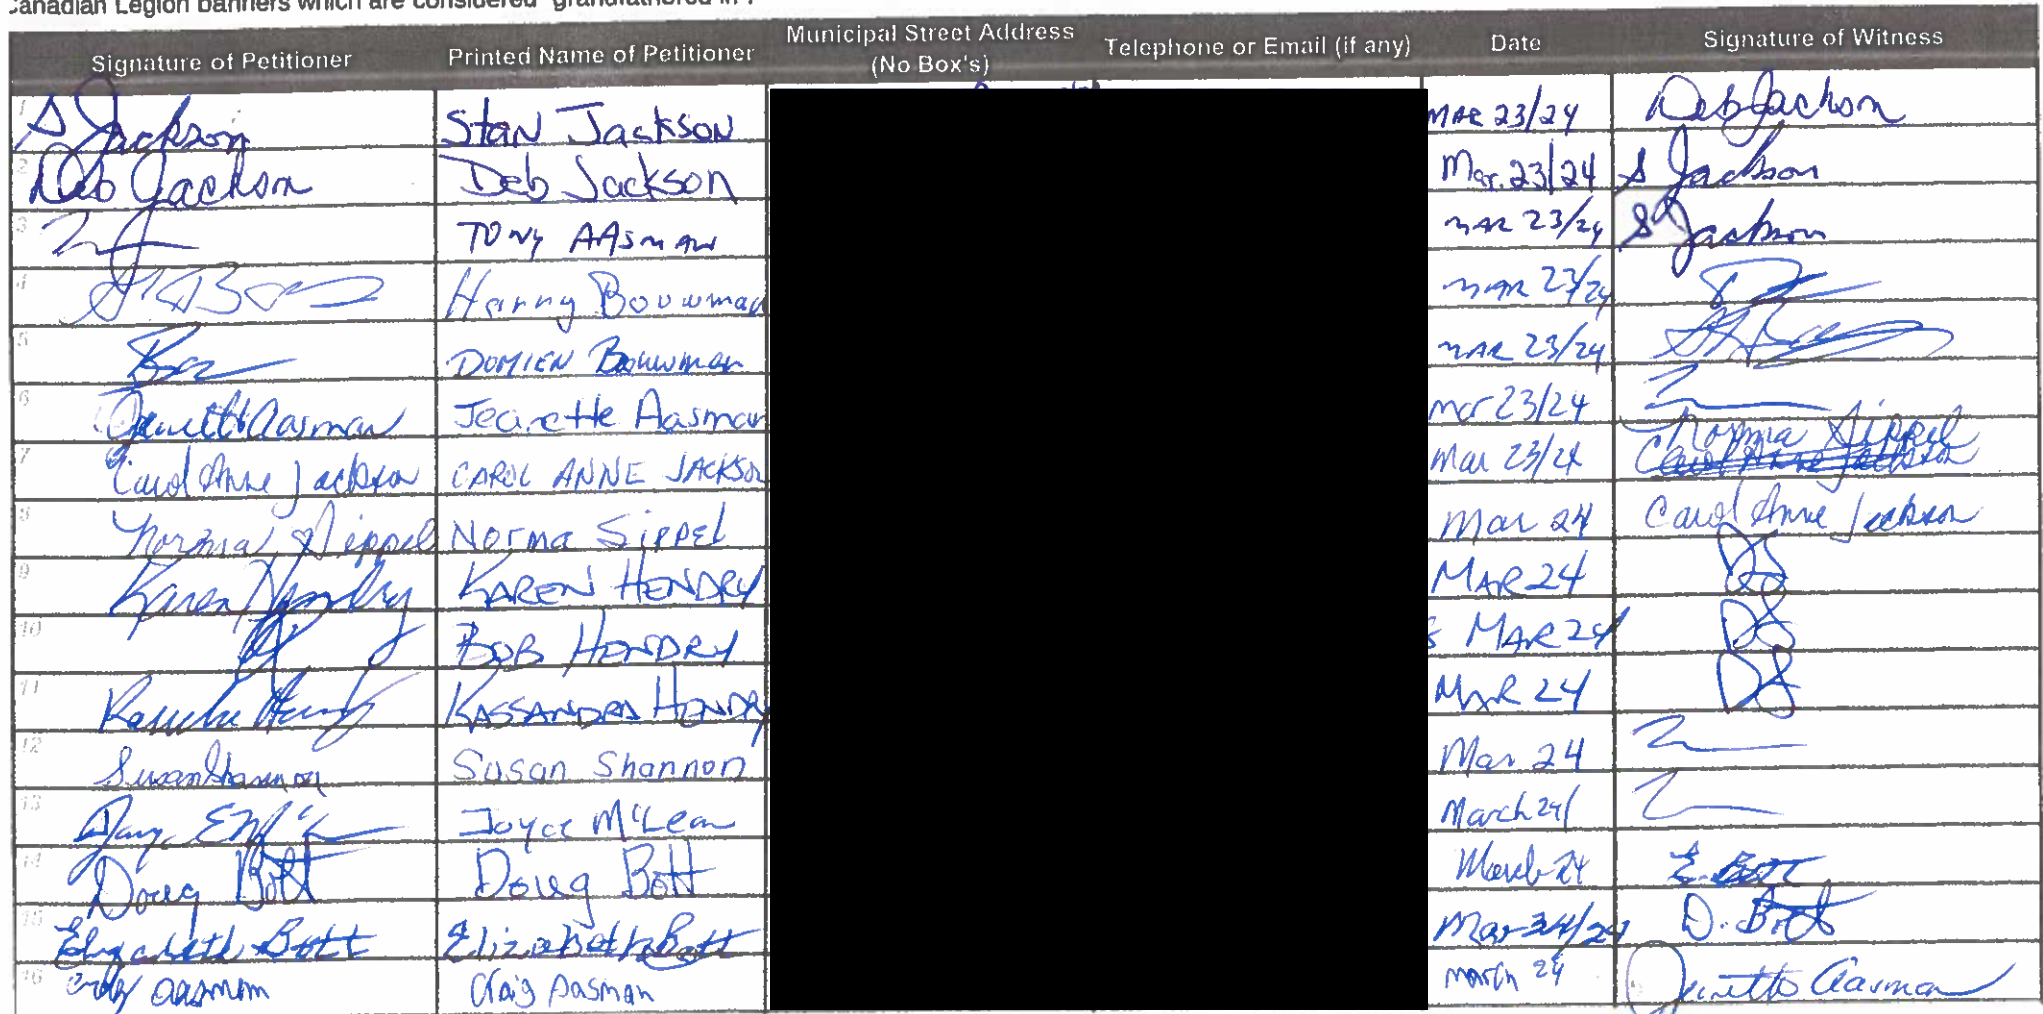 Canadian Legion banners which are considered "grandfathered in".
Signature of Petitioner Printed Name of Petitioner Municipal Street Address (No Box's) Telephone or Email (if any) Date Signature of Witness
1 S Jackson Stan Jackson MAR 23/24 Deb Jackson
2 Deb Jackson Deb Jackson Mar. 23/24 S Jackson
3 Tony AAsman MAR 23/24 S Jackson
4 Harmy Bouwman MAR 23/24
5 DOMIEN Bouwman MAR 23/24
6 Jeanette Aasman Jeanette Aasman mar 23/24
7 Carol Anne Jackson CAROL ANNE JACKSON Mar 23/24 Norma Sippel Carol Anne Jackson
8 Norma Sippel Norma Sippel Mar 24 Carol Anne Jackson
9 Karen Hendry KAREN HENDRY MAR 24
10 BOB HENDRY MAR 24
11 KASSANDRA HENDRY MAR 24
12 Susan Shannon Susan Shannon Mar 24
13 Joyce McLean March 24
14 Doug Bott Doug Bott March 24 E. Bott
15 Elizabeth Bott Elizabeth Bott Mar 24/24 D. Bott
16 Craig Aasman Craig Aasman march 24 Jeanette Aasman